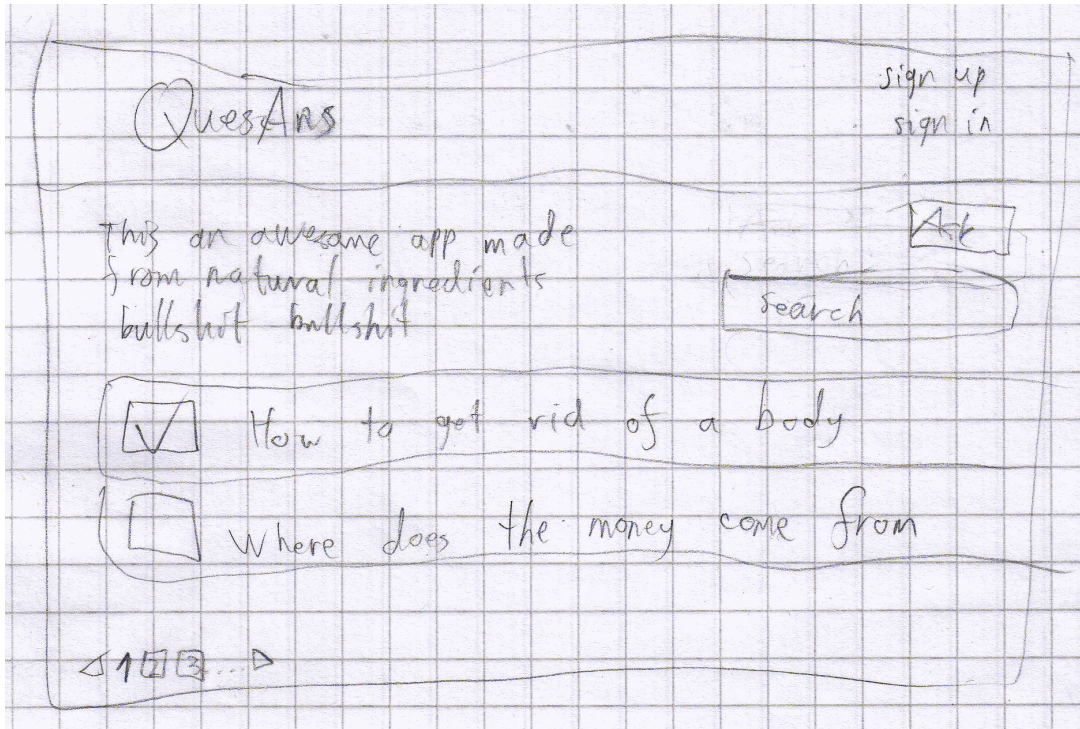 QuesAns
sign up
sign in
This an awesome app made
from natural ingredients
bullshot bullshit
Ask
Search
How to get rid of a body
Where does the money come from
1 2 3 ...